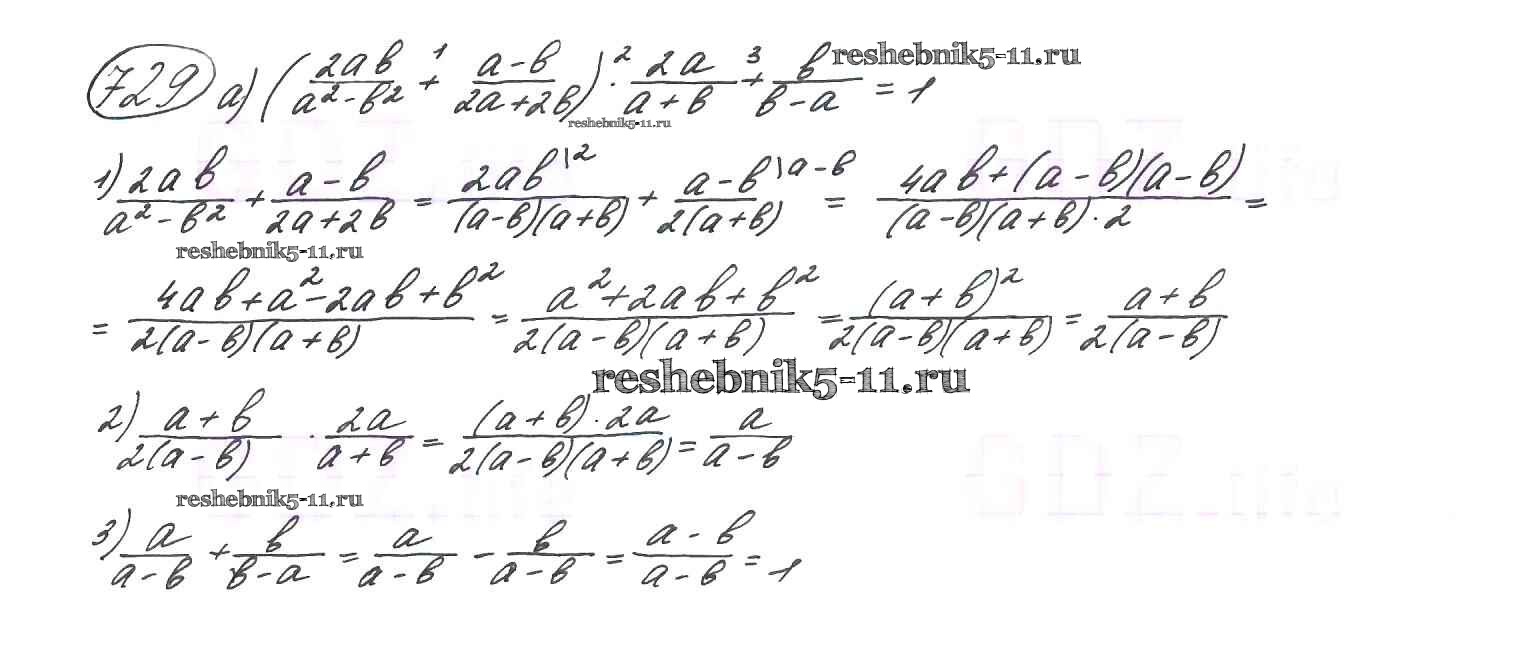 729 а) (2ab/(a²-b²) +¹ (a-b)/(2a+2b)) ·² 2a/(a+b) +³ b/(b-a) = 1
reshebnik5-11.ru
reshebnik5-11.ru
1) 2ab/(a²-b²) + (a-b)/(2a+2b) = 2ab\²/((a-b)(a+b)) + (a-b)\a-b/(2(a+b)) = (4ab+(a-b)(a-b))/((a-b)(a+b)·2) =
reshebnik5-11.ru
= (4ab+a²-2ab+b²)/(2(a-b)(a+b)) = (a²+2ab+b²)/(2(a-b)(a+b)) = (a+b)²/(2(a-b)(a+b)) = (a+b)/(2(a-b))
reshebnik5-11.ru
2) (a+b)/(2(a-b)) · 2a/(a+b) = ((a+b)·2a)/(2(a-b)(a+b)) = a/(a-b)
reshebnik5-11.ru
3) a/(a-b) + b/(b-a) = a/(a-b) - b/(a-b) = (a-b)/(a-b) = 1